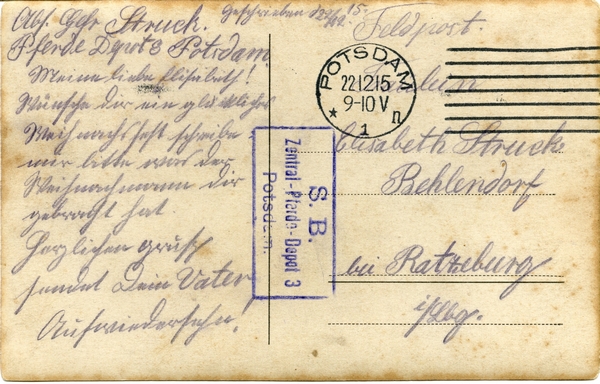 Abs. Gefr. Struck.
Pferde Depot 3 Potsdam.
Geschrieben d. 21/12. 15.
Meine liebe Elisabeth!
Wünsche dir ein glückliches
Weihnachsfest schreibe
mir bitte was der
Weihnachmann dir
gebracht hat
Herzlichen gruß
sendet Dein Vater,
Aufwiedersehn!
Feldpost.
POTSDAM
22.12.15
9-10 V
* 1 n
S. B.
Zentral-Pferde-Depot 3
Potsdam.
Fräulein
Elisabeth Struck
Behlendorf
bei Ratzeburg
i/Lbg.